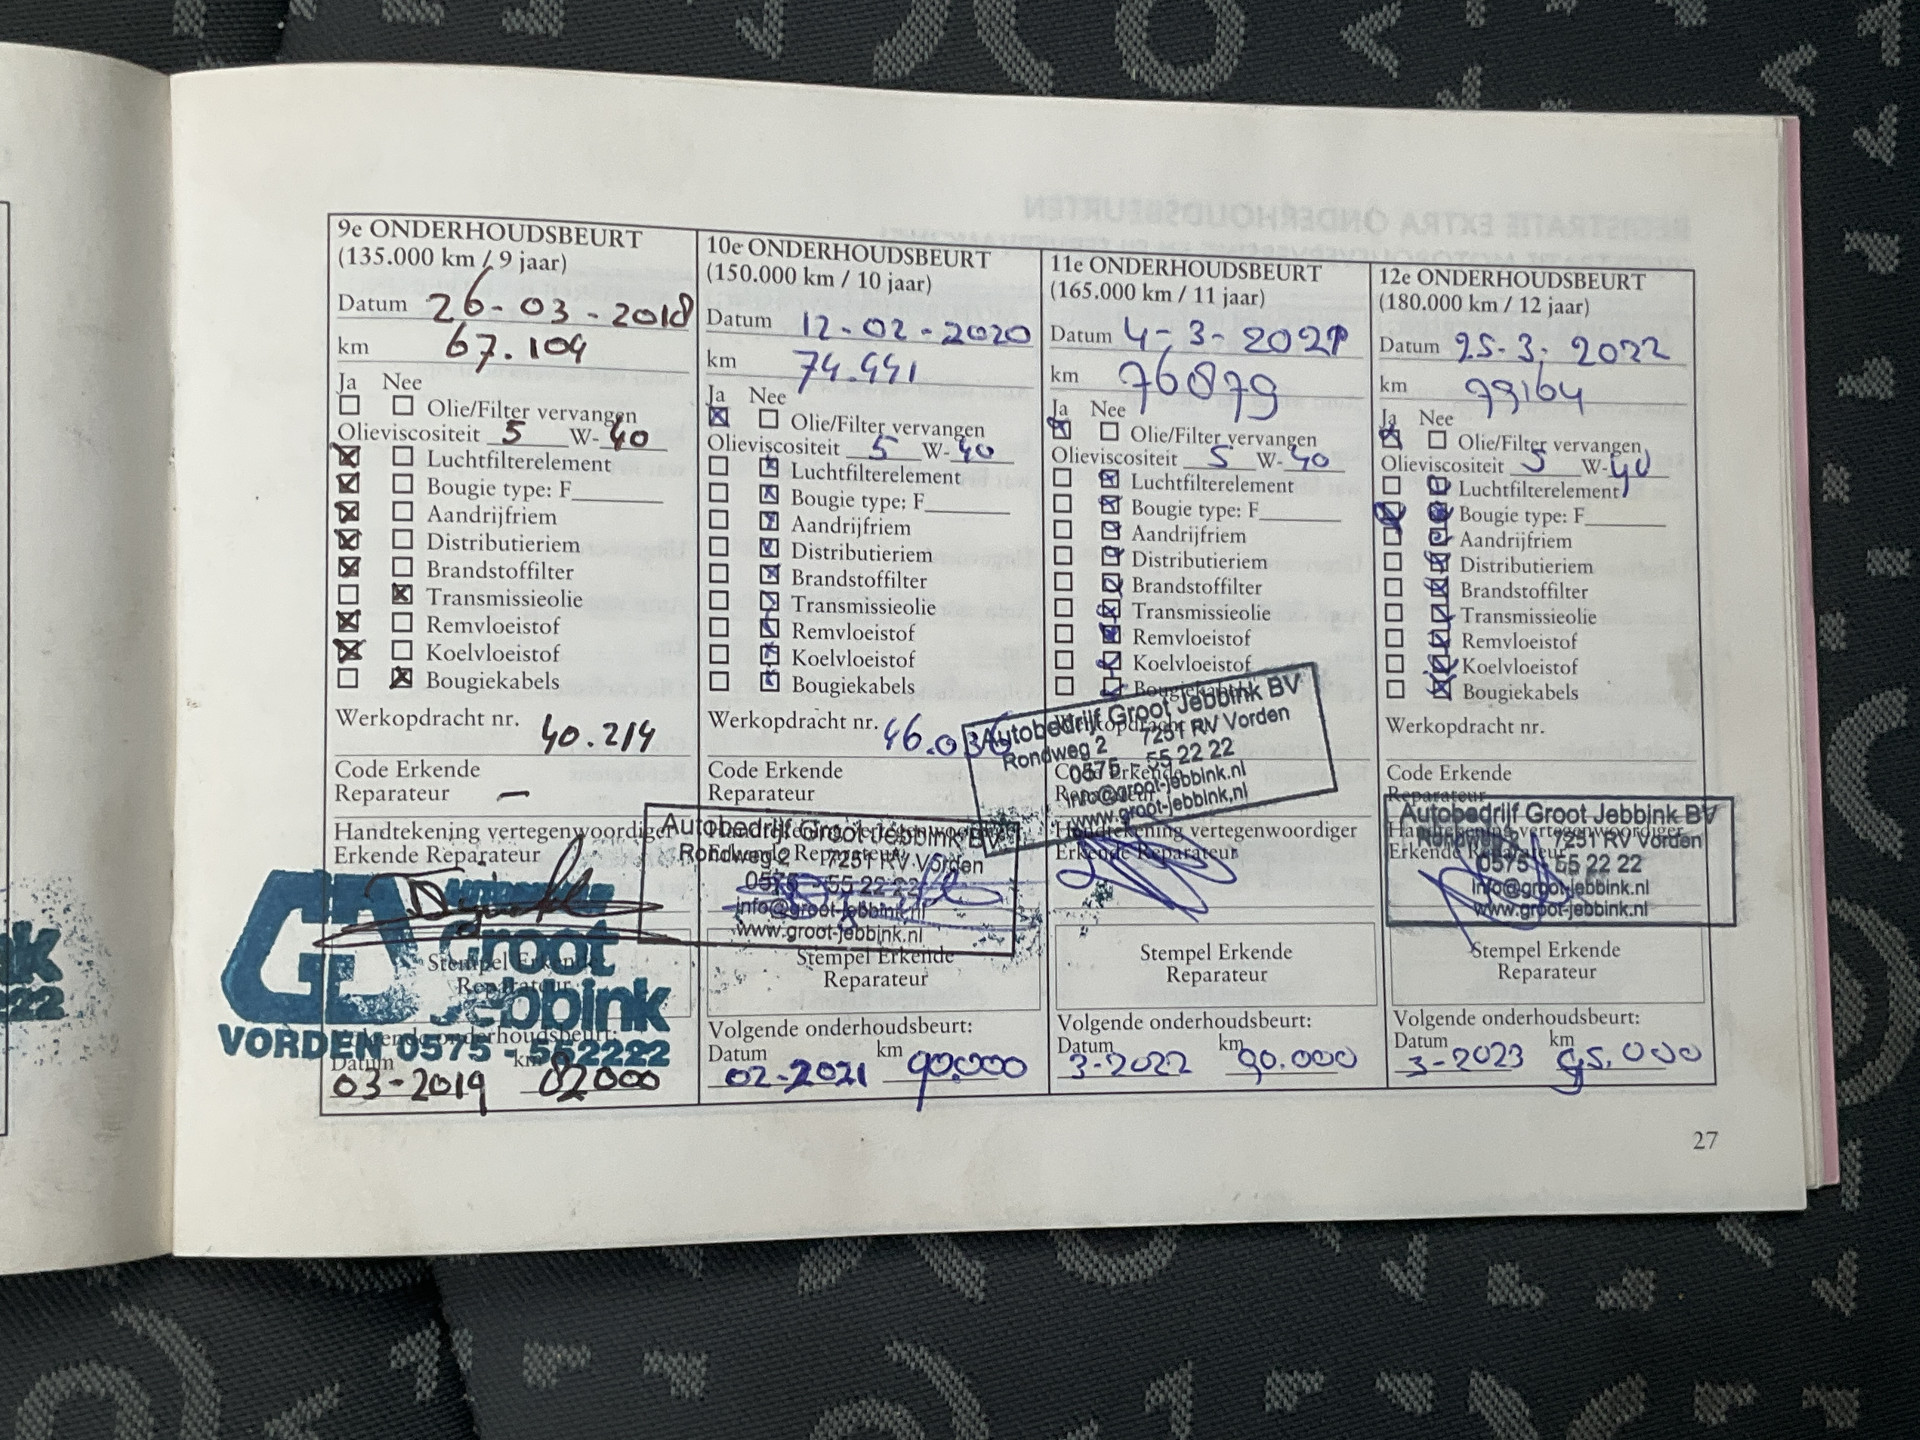 9e ONDERHOUDSBEURT
(135.000 km / 9 jaar)
Datum 26-03-2018
km 67.104
Ja Nee
Olie/Filter vervangen
Olieviscositeit 5 W-40
Luchtfilterelement
Bougie type: F
Aandrijfriem
Distributieriem
Brandstoffilter
Transmissieolie
Remvloeistof
Koelvloeistof
Bougiekabels
Werkopdracht nr. 40.214
Code Erkende
Reparateur —
Handtekening vertegenwoordiger
Erkende Reparateur
Groot
Jebbink
VORDEN 0575 - 552222
Stempel Erkende
Reparateur
Volgende onderhoudsbeurt:
Datum km
03-2019 82000
10e ONDERHOUDSBEURT
(150.000 km / 10 jaar)
Datum 12-02-2020
km 74.441
Ja Nee
Olie/Filter vervangen
Olieviscositeit 5 W-40
Luchtfilterelement
Bougie type: F
Aandrijfriem
Distributieriem
Brandstoffilter
Transmissieolie
Remvloeistof
Koelvloeistof
Bougiekabels
Werkopdracht nr. 46.036
Code Erkende
Reparateur
Autobedrijf Groot Jebbink BV
Rondweg 2 7251 RV Vorden
0575 - 55 22 22
info@groot-jebbink.nl
www.groot-jebbink.nl
Stempel Erkende
Reparateur
Volgende onderhoudsbeurt:
Datum km
02-2021 90.000
11e ONDERHOUDSBEURT
(165.000 km / 11 jaar)
Datum 4-3-2021
km 76879
Ja Nee
Olie/Filter vervangen
Olieviscositeit 5 W-40
Luchtfilterelement
Bougie type: F
Aandrijfriem
Distributieriem
Brandstoffilter
Transmissieolie
Remvloeistof
Koelvloeistof
Bougiekabels
Autobedrijf Groot Jebbink BV
Rondweg 2 7251 RV Vorden
0575 - 55 22 22
info@groot-jebbink.nl
www.groot-jebbink.nl
Handtekening vertegenwoordiger
Erkende Reparateur
Stempel Erkende
Reparateur
Volgende onderhoudsbeurt:
Datum km
3-2022 90.000
12e ONDERHOUDSBEURT
(180.000 km / 12 jaar)
Datum 25-3-2022
km 79164
Ja Nee
Olie/Filter vervangen
Olieviscositeit 5 W-40
Luchtfilterelement
Bougie type: F
Aandrijfriem
Distributieriem
Brandstoffilter
Transmissieolie
Remvloeistof
Koelvloeistof
Bougiekabels
Werkopdracht nr.
Code Erkende
Reparateur
Autobedrijf Groot Jebbink BV
Handtekening vertegenwoordiger
Rondweg 2 7251 RV Vorden
Erkende Reparateur
0575 - 55 22 22
info@groot-jebbink.nl
www.groot-jebbink.nl
Stempel Erkende
Reparateur
Volgende onderhoudsbeurt:
Datum km
3-2023 95.000
27